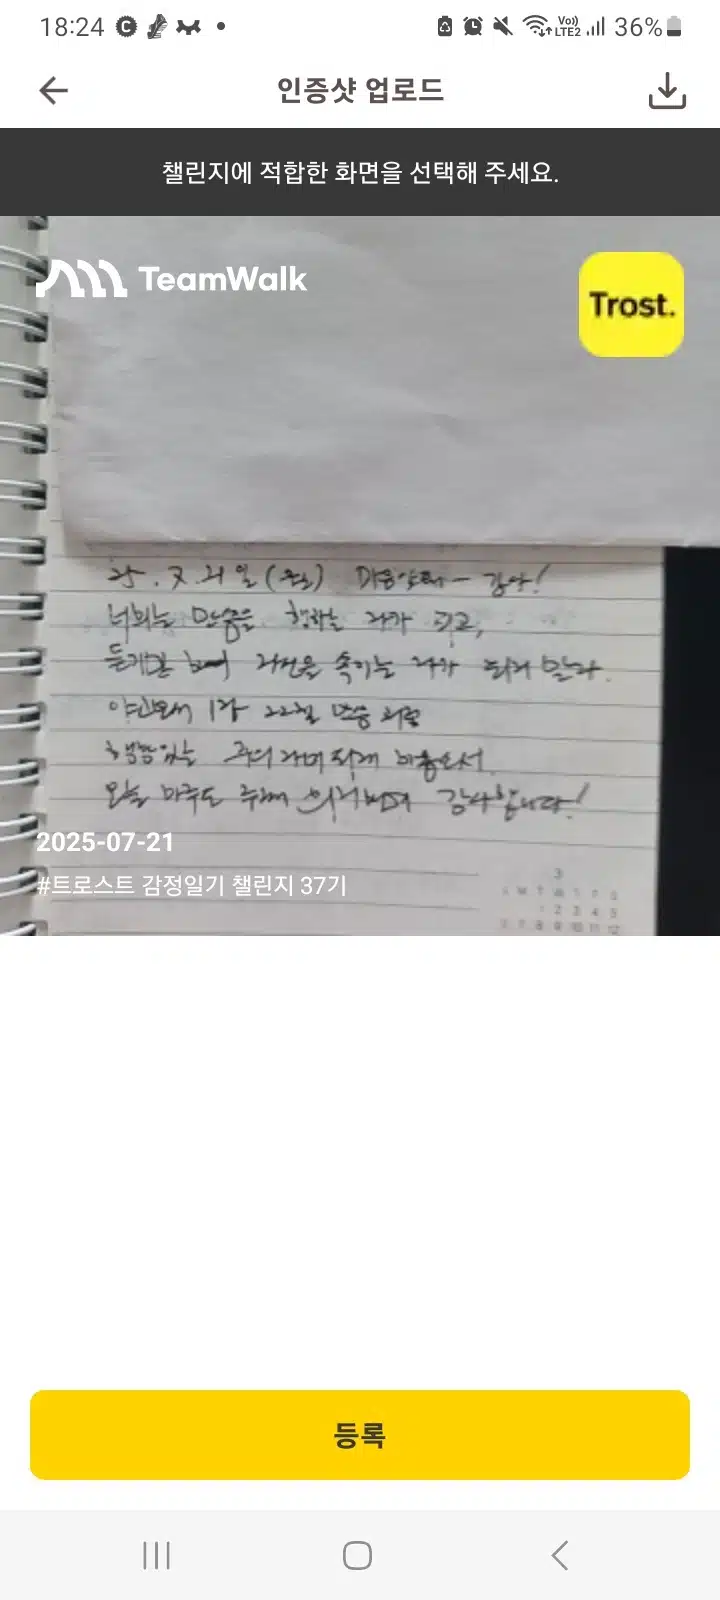 18:24
Vo))
LTE2
36%
인증샷 업로드
챌린지에 적합한 화면을 선택해 주세요.
TeamWalk
Trost.
25. 7. 21일 (월) 감사!
너희는 말씀을 행하는 자가 되고,
듣기만 하여 자신을 속이는 자가 되지 말라.
야고보서 1장 22절 말씀
행함있는 주의 자녀 되게 하옵소서.
오늘 하루도 주께 감사합니다!
2025-07-21
#트로스트 감정일기 챌린지 37기
3
S M T W T F S
1 2 3 4 5
6 7 8 9 10 11 12
등록